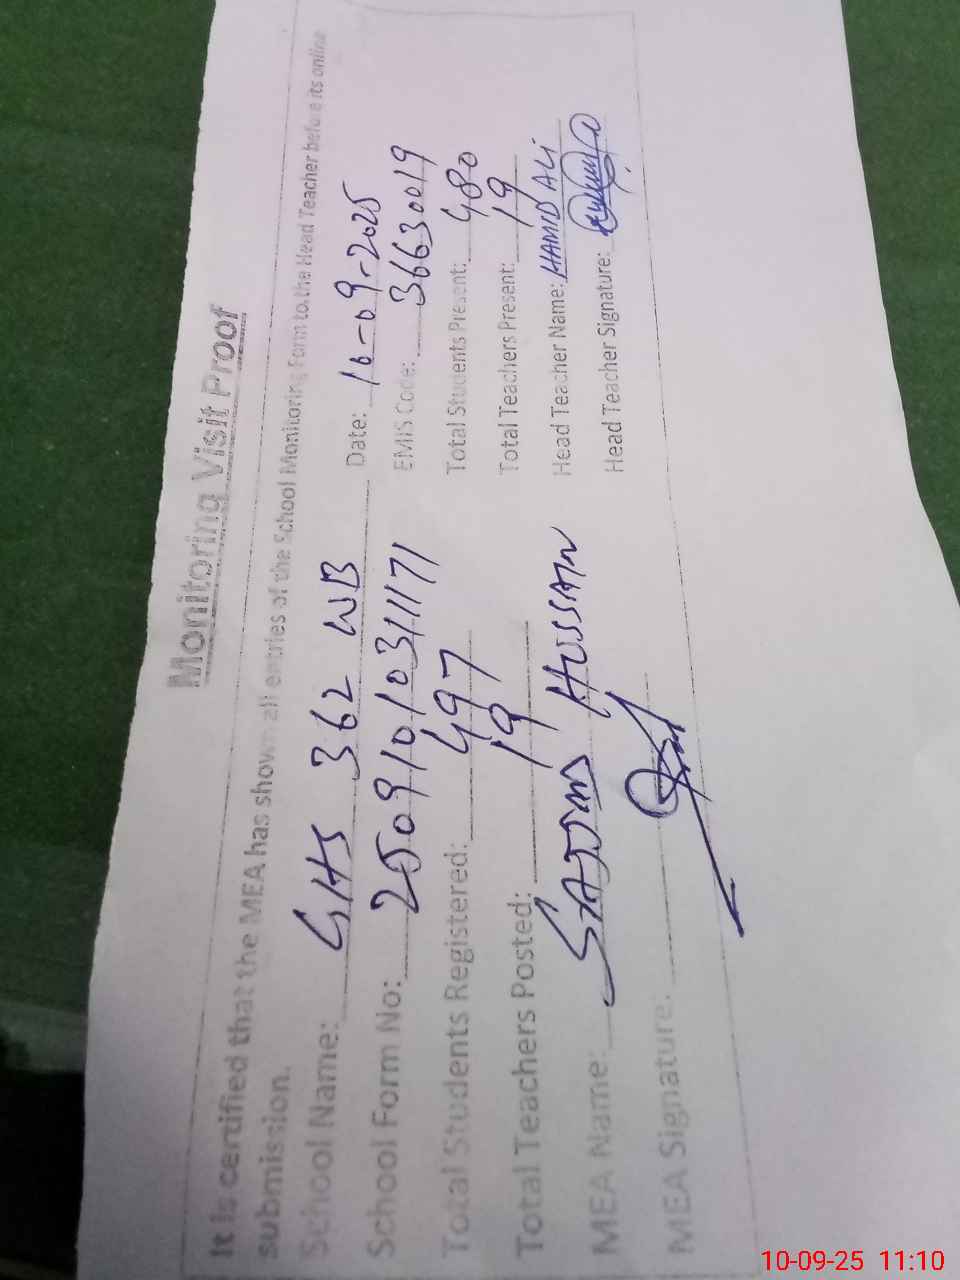 Monitoring Visit Proof
It is certified that the MEA has shown all entries of the School Monitoring Form to the Head Teacher before its online
submission.
School Name: GHS 362 WB Date: 10-09-2025
School Form No: 25091010311171 EMIS Code: 36630019
Total Students Registered: 497 Total Students Present: 480
Total Teachers Posted: 19 Total Teachers Present: 19
MEA Name: HUSSAIN Head Teacher Name: HAMID ALI
MEA Signature: Head Teacher Signature:
10-09-25 11:10